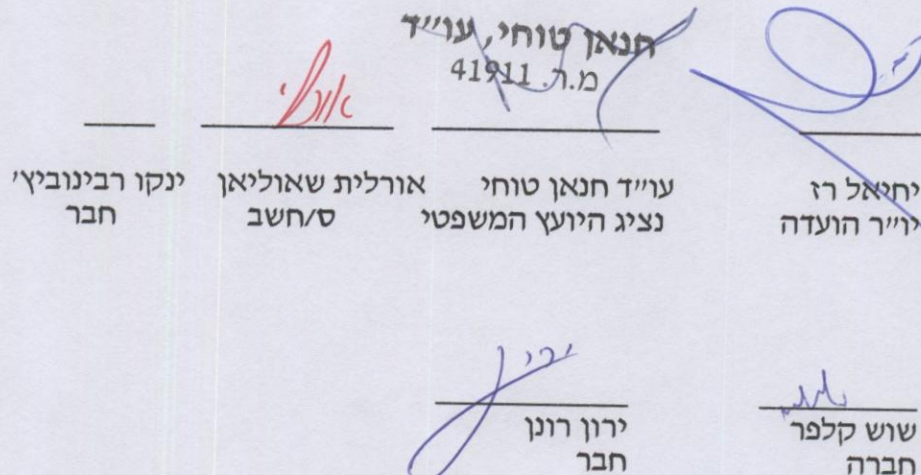 חנאן טוחי, עו״ד
מ.ר. 41911
אורלי
יחיאל רז
יו״ר הועדה
עו״ד חנאן טוחי
נציג היועץ המשפטי
אורלית שאוליאן
ס/חשב
ינקו רבינוביץ׳
חבר
ירון
שוש קלפר
חברה
ירון רונן
חבר